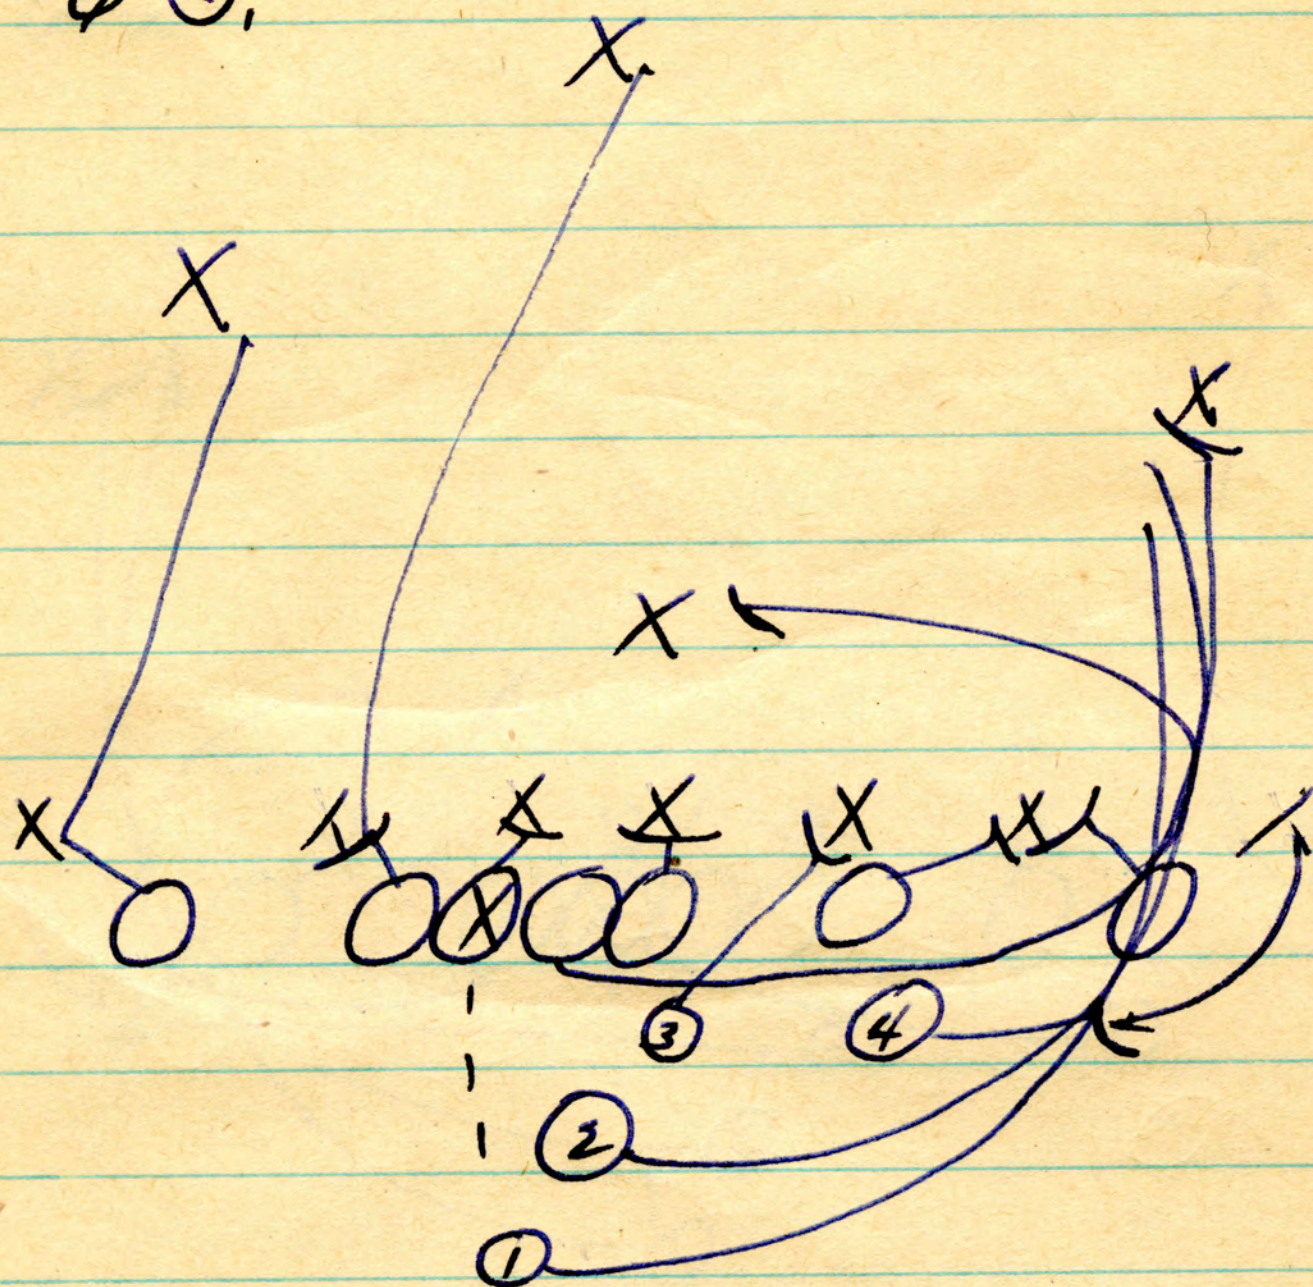 X
X
X
X
X X X X X X
X
3 4
2
1